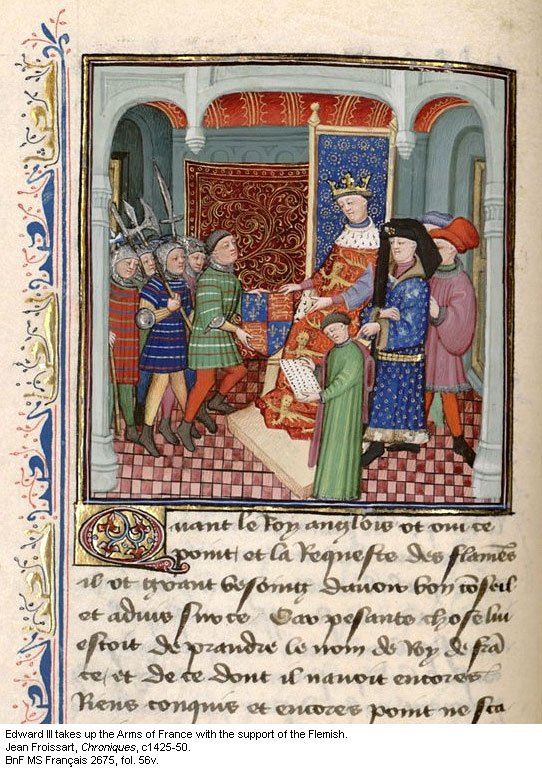 Quant le Roy anglois ot oui ce
point et la Requeste des flamẽs
il ot grant besoing davoir bon cõseil
et aduis sur ce Car pesante chose lui
estoit de prandre le nom de Roy de frã
ce et de ce dont il nauoit encores
Riens conquis et encores point ne sca
Edward III takes up the Arms of France with the support of the Flemish.
Jean Froissart, Chroniques, c1425-50.
BnF MS Français 2675, fol. 56v.